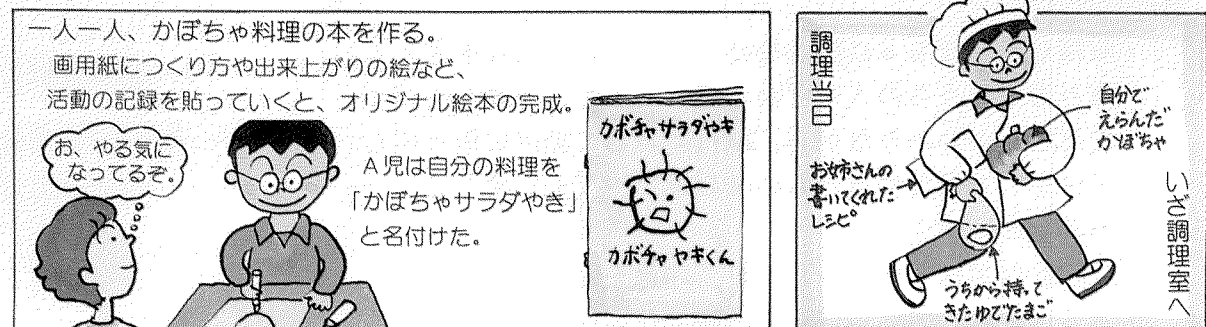 一人一人、かぼちゃ料理の本を作る。
画用紙につくり方や出来上がりの絵など、
活動の記録を貼っていくと、オリジナル絵本の完成。
お、やる気に
なってるぞ。
A児は自分の料理を
「かぼちゃサラダやき」
と名付けた。
カボチャサラダやキ
カボチャヤキくん
調理当日
自分で
えらんだ
かぼちゃ
お姉さんの
書いてくれた
レシピ
うちから持って
きたゆでたまご
いざ調理室へ